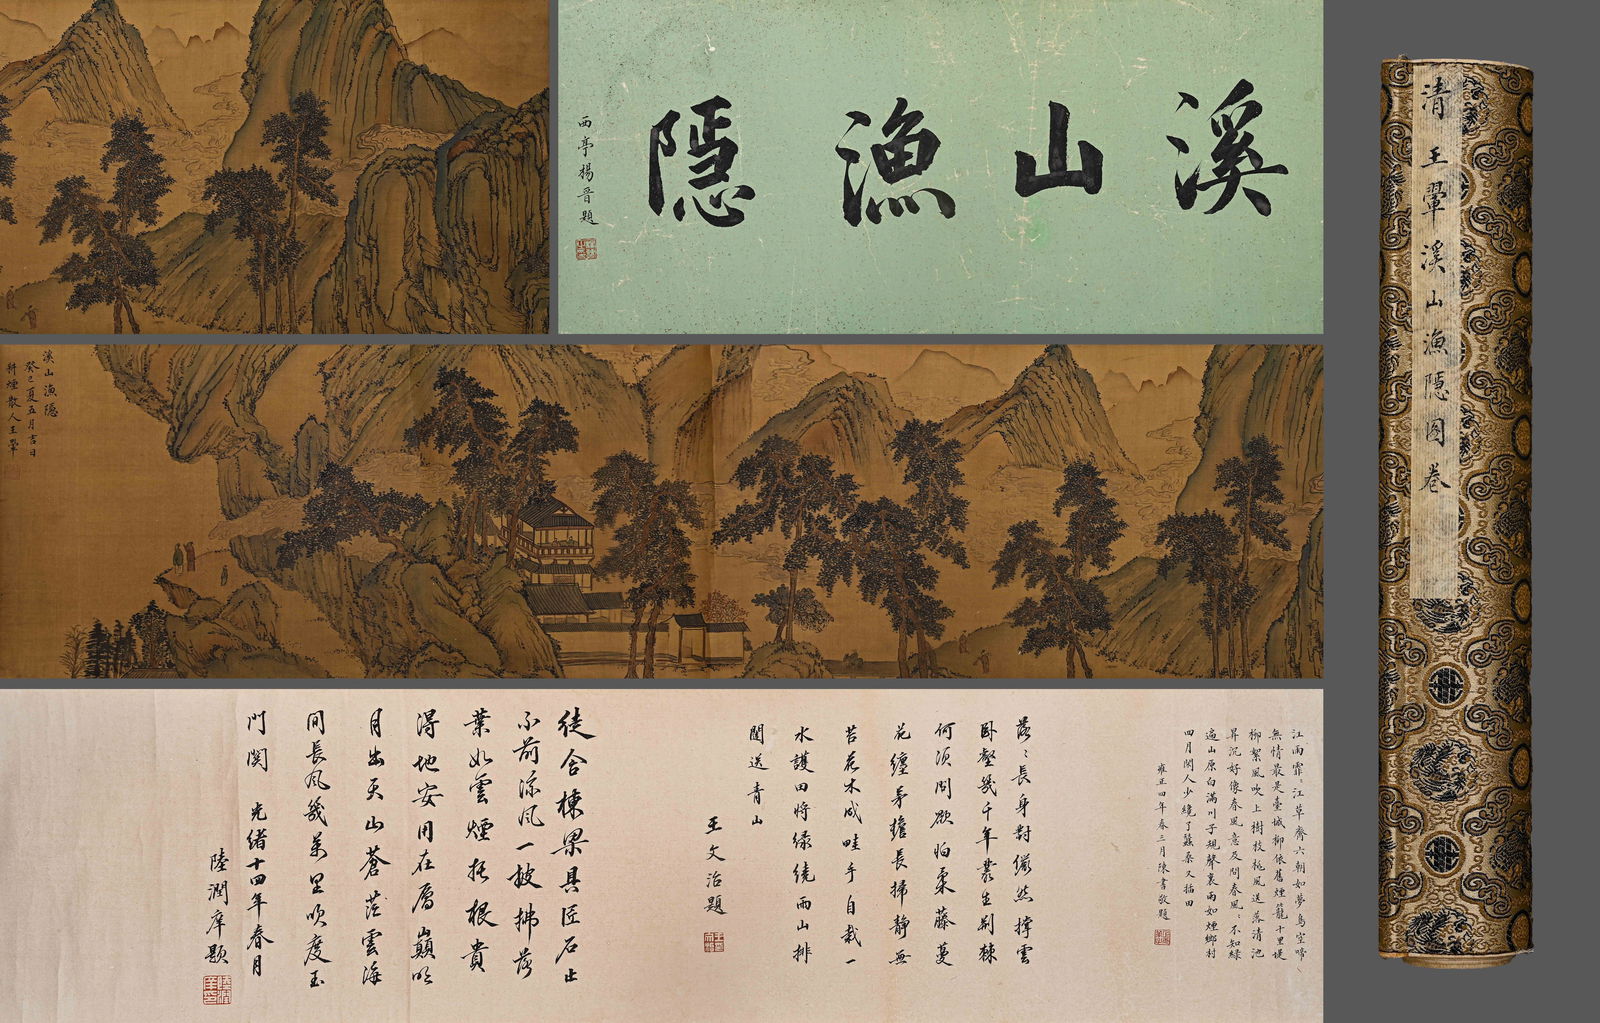 溪山漁隱
西亭楊晉題
溪山漁隱
癸巳夏五月吉日
耕煙散人王翬
江雨霏霏江草齊六朝如夢鳥空啼
無情最是臺城柳依舊煙籠十里堤
柳絮風吹上樹枝桃風送落清池
昇沉好像春風意及問春風風不知綠
遍山原白滿川子規聲裏雨如煙鄉村
四月閒人少纔了蠶桑又插田
雍正四年春三月陳書敬題
落落長身對儼然撐雲
卧壑幾千年叢生荆棘
何須問欲怕柔藤蔓
花纏茅檐長掃靜無
苔花木成畦手自栽一
水護田將绿繞兩山排
闥送青山
王文治題
徒含棟梁具匠石止
不前涼風一披拂落
葉如雲煙托根貴
得地安用在厲巔明
月出天山蒼茫雲海
間長風幾萬里吹度玉
門関
光緒十四年春月
陸潤庠題
清王翬溪山漁隱图卷